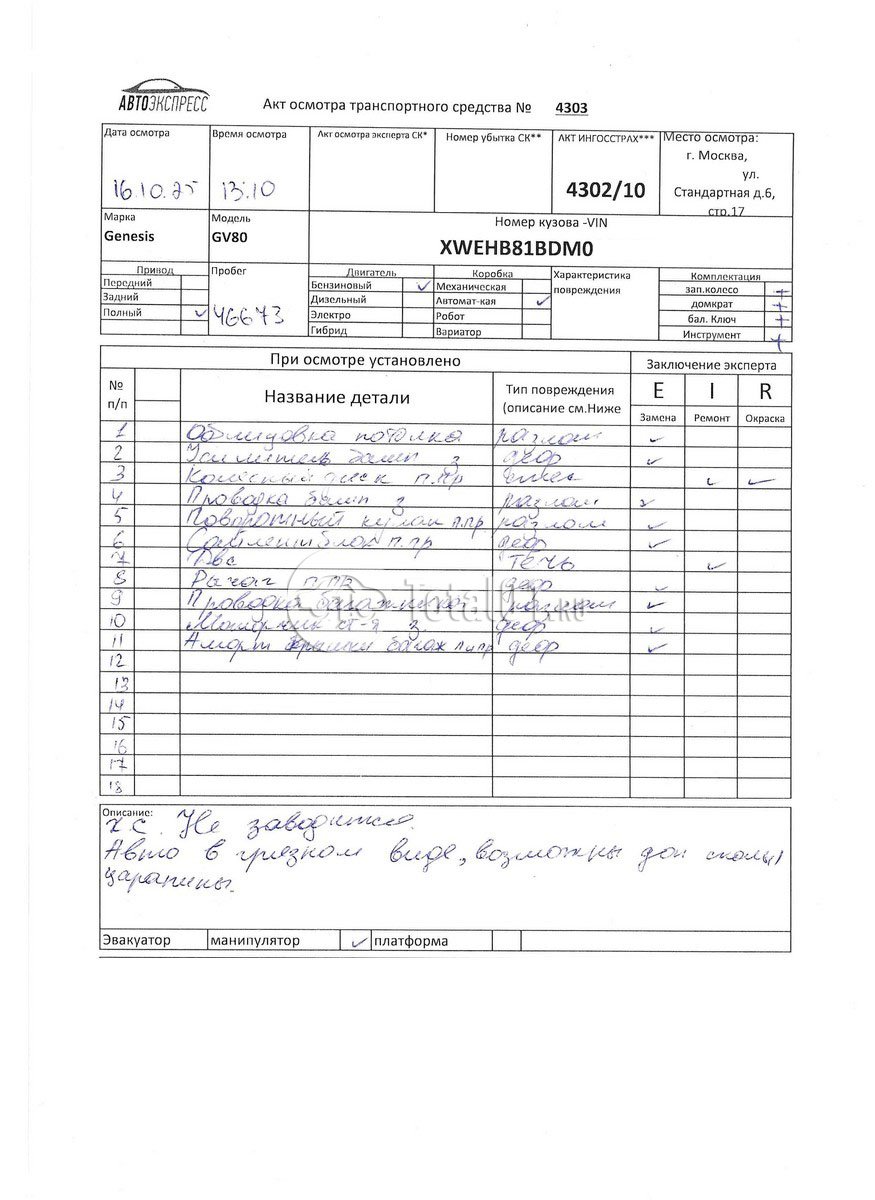 АВТОЭКСПРЕСС
Акт осмотра транспортного средства № 4303
Дата осмотра
16.10.25
Время осмотра
13:10
Акт осмотра эксперта СК*
Номер убытка СК**
АКТ ИНГОССТРАХ***
4302/10
Место осмотра:
г. Москва,
ул.
Стандартная д.6,
стр.17
Марка
Genesis
Модель
GV80
Номер кузова -VIN
XWEHB81BDM0
Привод
Передний
Задний
Полный ✓
Пробег
46673
Двигатель
Бензиновый ✓
Дизельный
Электро
Гибрид
Коробка
Механическая
Автомат-кая ✓
Робот
Вариатор
Характеристика
повреждения
Комплектация
зап.колесо +
домкрат +
бал. Ключ +
Инструмент +
При осмотре установлено
Заключение эксперта
№
п/п
Название детали
Тип повреждения
(описание см.Ниже
E I R
Замена Ремонт Окраска
1 Облицовка потолка разлом ✓
2 Усилитель бамп з дефор ✓
3 Колесный диск п.пр ✓ ✓
4 Проводка бамп з разлом ✓
5 Поворотный кулак п.пр разлом ✓
6 п.пр дефор ✓
7 Двс течь ✓
8 Рычаг п.пр дефор ✓
9 Проводка багажника разлом ✓
10 з. дефор ✓
11 Аморт крышки багаж л и пр дефор ✓
12
13
14
15
16
17
18
TotalCars.RU
Описание:
Х.С. Не заводится.
Авто в грязном виде, возможны доп сколы,
царапины.
Эвакуатор манипулятор ✓ платформа